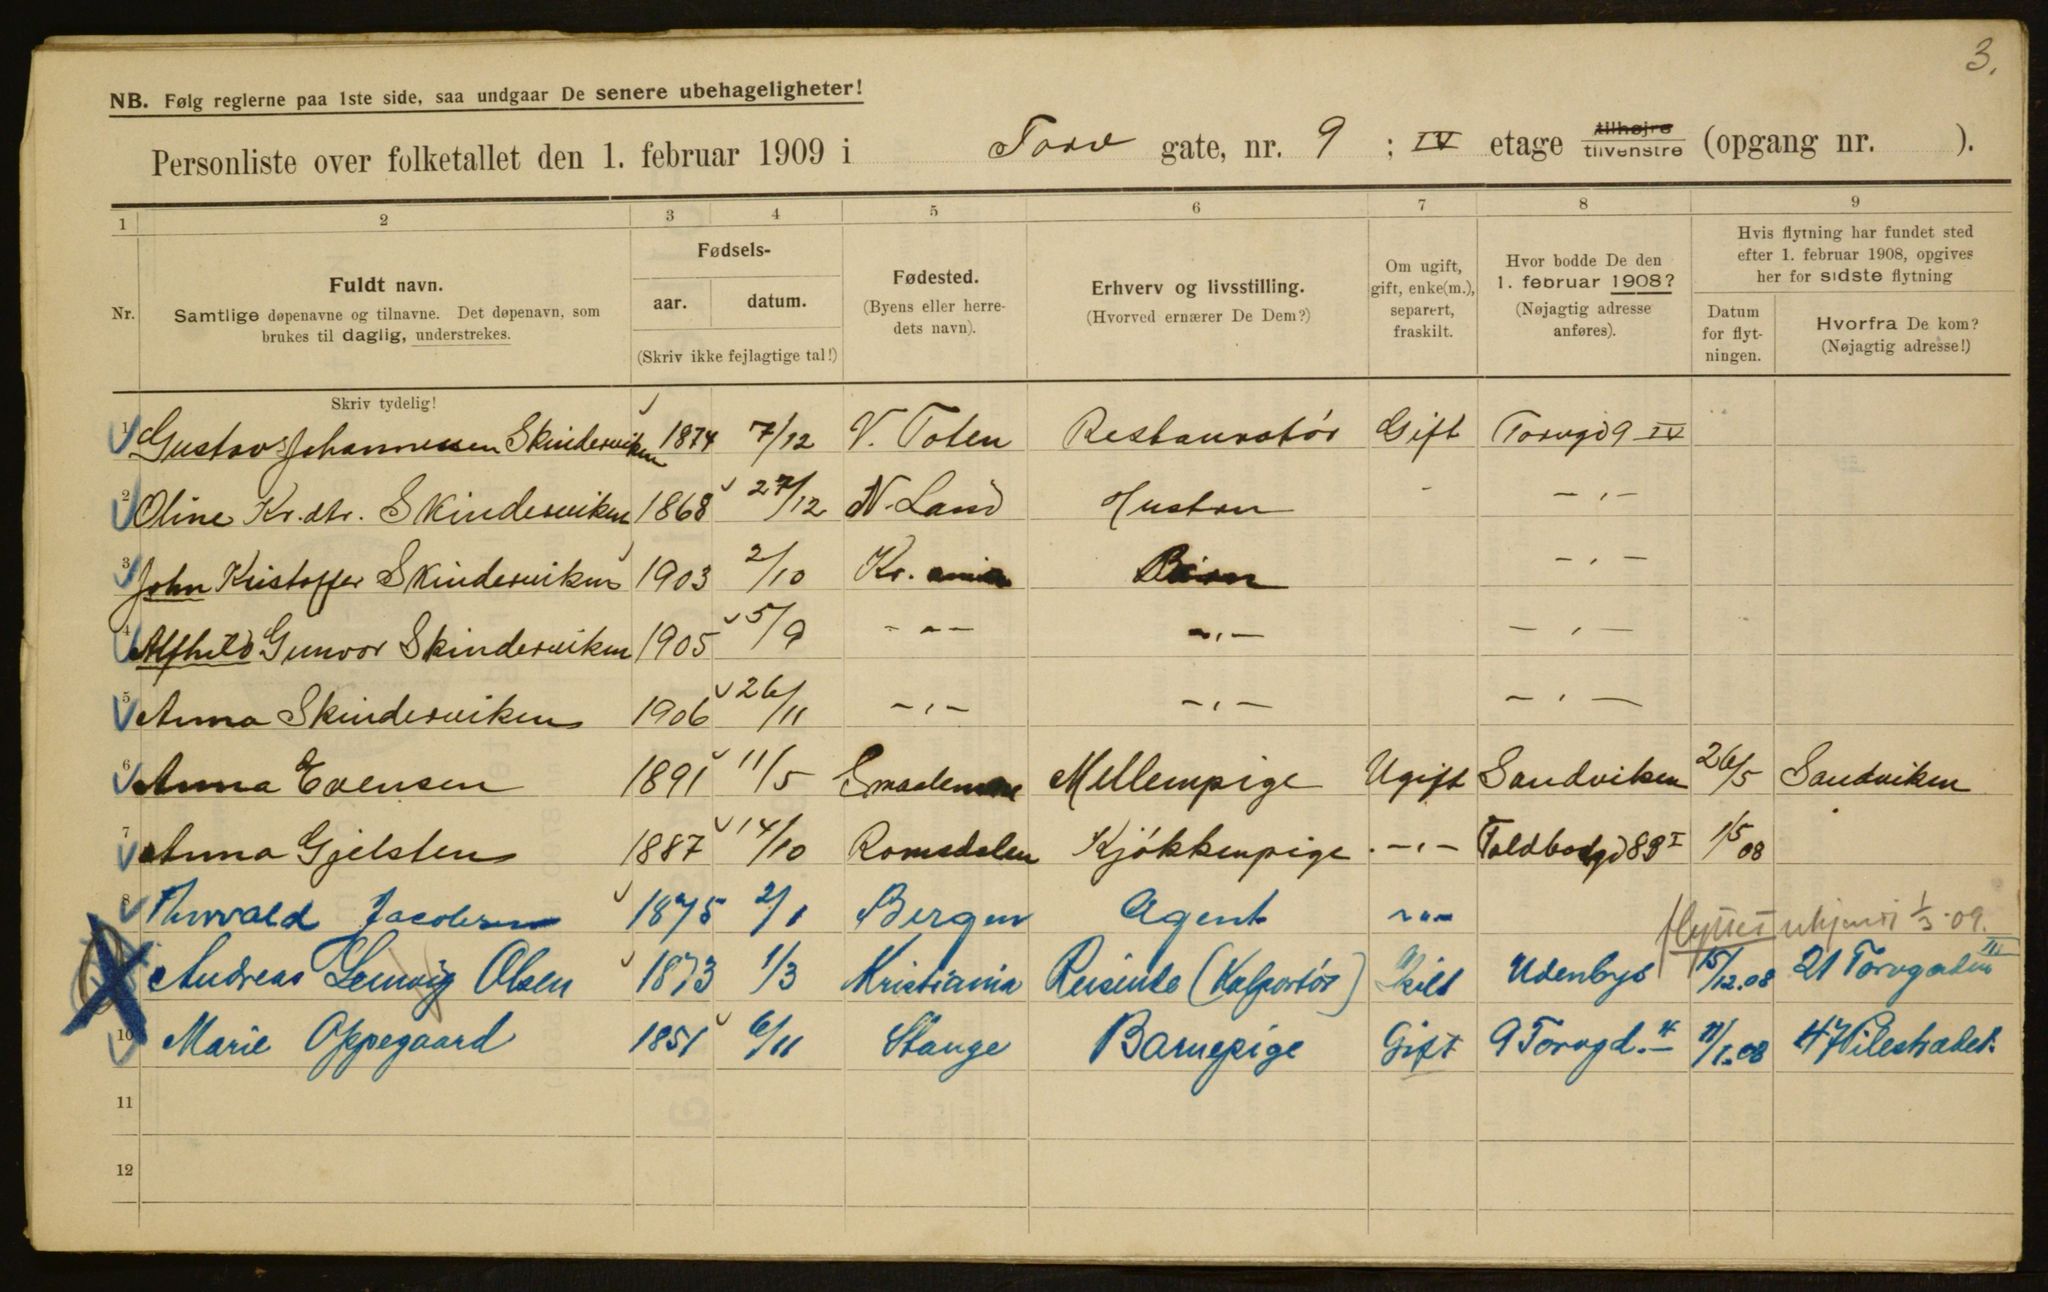 3.
NB. Følg reglerne paa 1ste side, saa undgaar De senere ubehageligheter!
Personliste over folketallet den 1. februar 1909 i Torv gate, nr. 9 ; IV etage tilhøjre tilvenstre (opgang nr. ).
1 2 3 4 5 6 7 8 9
Nr.
Fuldt navn.
Samtlige døpenavne og tilnavne. Det døpenavn, som
brukes til daglig, understrekes.
Fødsels-
aar. datum.
(Skriv ikke fejlagtige tal!)
Fødested.
(Byens eller herre-
dets navn).
Erhverv og livsstilling.
(Hvorved ernærer De Dem?)
Om ugift,
gift, enke(m.),
separert,
fraskilt.
Hvor bodde De den
1. februar 1908?
(Nøjagtig adresse
anføres).
Hvis flytning har fundet sted
efter 1. februar 1908, opgives
her for sidste flytning
Datum
for flyt-
ningen.
Hvorfra De kom?
(Nøjagtig adresse!)
Skriv tydelig!
1 Gustav Johannessen Skinderviken 1874 7/12 V. Toten Restauratør Gift Torvgd 9 IV
2 Oline Kr.dtr. Skinderviken 1868 27/12 N. Land Hustru - - " -
3 John Kristoffer Skinderviken 1903 2/10 Kr.ania Barn - " -
4 Alfhild Gunvor Skinderviken 1905 5/9 - " - - " - - " -
5 Anna Skinderviken 1906 26/11 - " - - " - - " -
6 Anna Evensen 1891 11/5 Smaalenene Mellempige Ugift Sandviken 26/5 Sandviken
7 Anna Gjelsten 1887 14/10 Romsdalen Kjøkkenpige - " - Toldbodgd 8 I 1/5 08
8 Thorvald Jacobsen 1875 2/1 Bergen Agent - " -
flyttet 1/3 - 09.
Andreas Lemvig Olsen 1873 1/3 Kristiania Reisende (Kolportør) Skilt Udenbys 15/12.08 21 Torvgaden III
10 Marie Oppegaard 1851 6/11 Stange Barnepige Gift 9 Torvgd. 11/1.08 47 Pilestrædet.
11
12